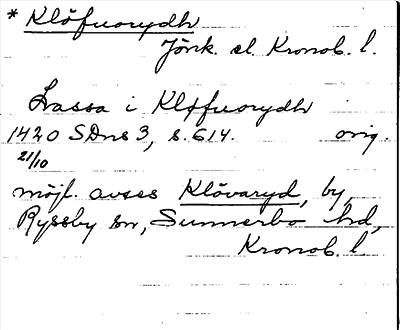 * Klöfuorydh
Jönk. el. Kronob. l.
Lassa i Kløfuorydh
1420 SDns 3, s. 614. orig.
21/10
möjl. avses Klövaryd, by,
Ryssby sn, Sunnerbo hd,
Kronob. l.